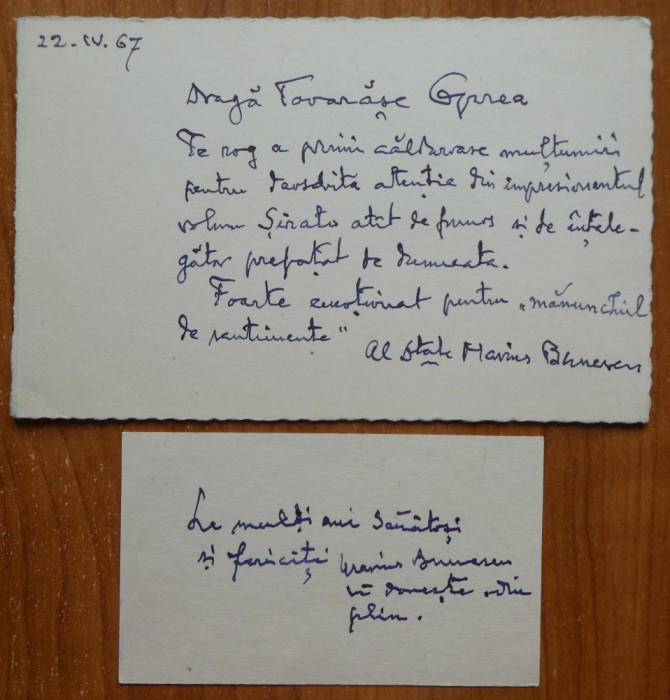 22.IV.67
Dragă Tovarășe Oprea
Te rog a primi călduroase mulțumiri
pentru deosebita atenție din impresionantul
volum Șirato atât de frumos și de înțele-
gător prefațat de dumneata.
Foarte emoționat pentru „mănunchiul
de sentimente"
Al Dtale Marius Bunescu
La mulți ani sănătoși
și fericiți Marius Bunescu
vă dorește din
plin.